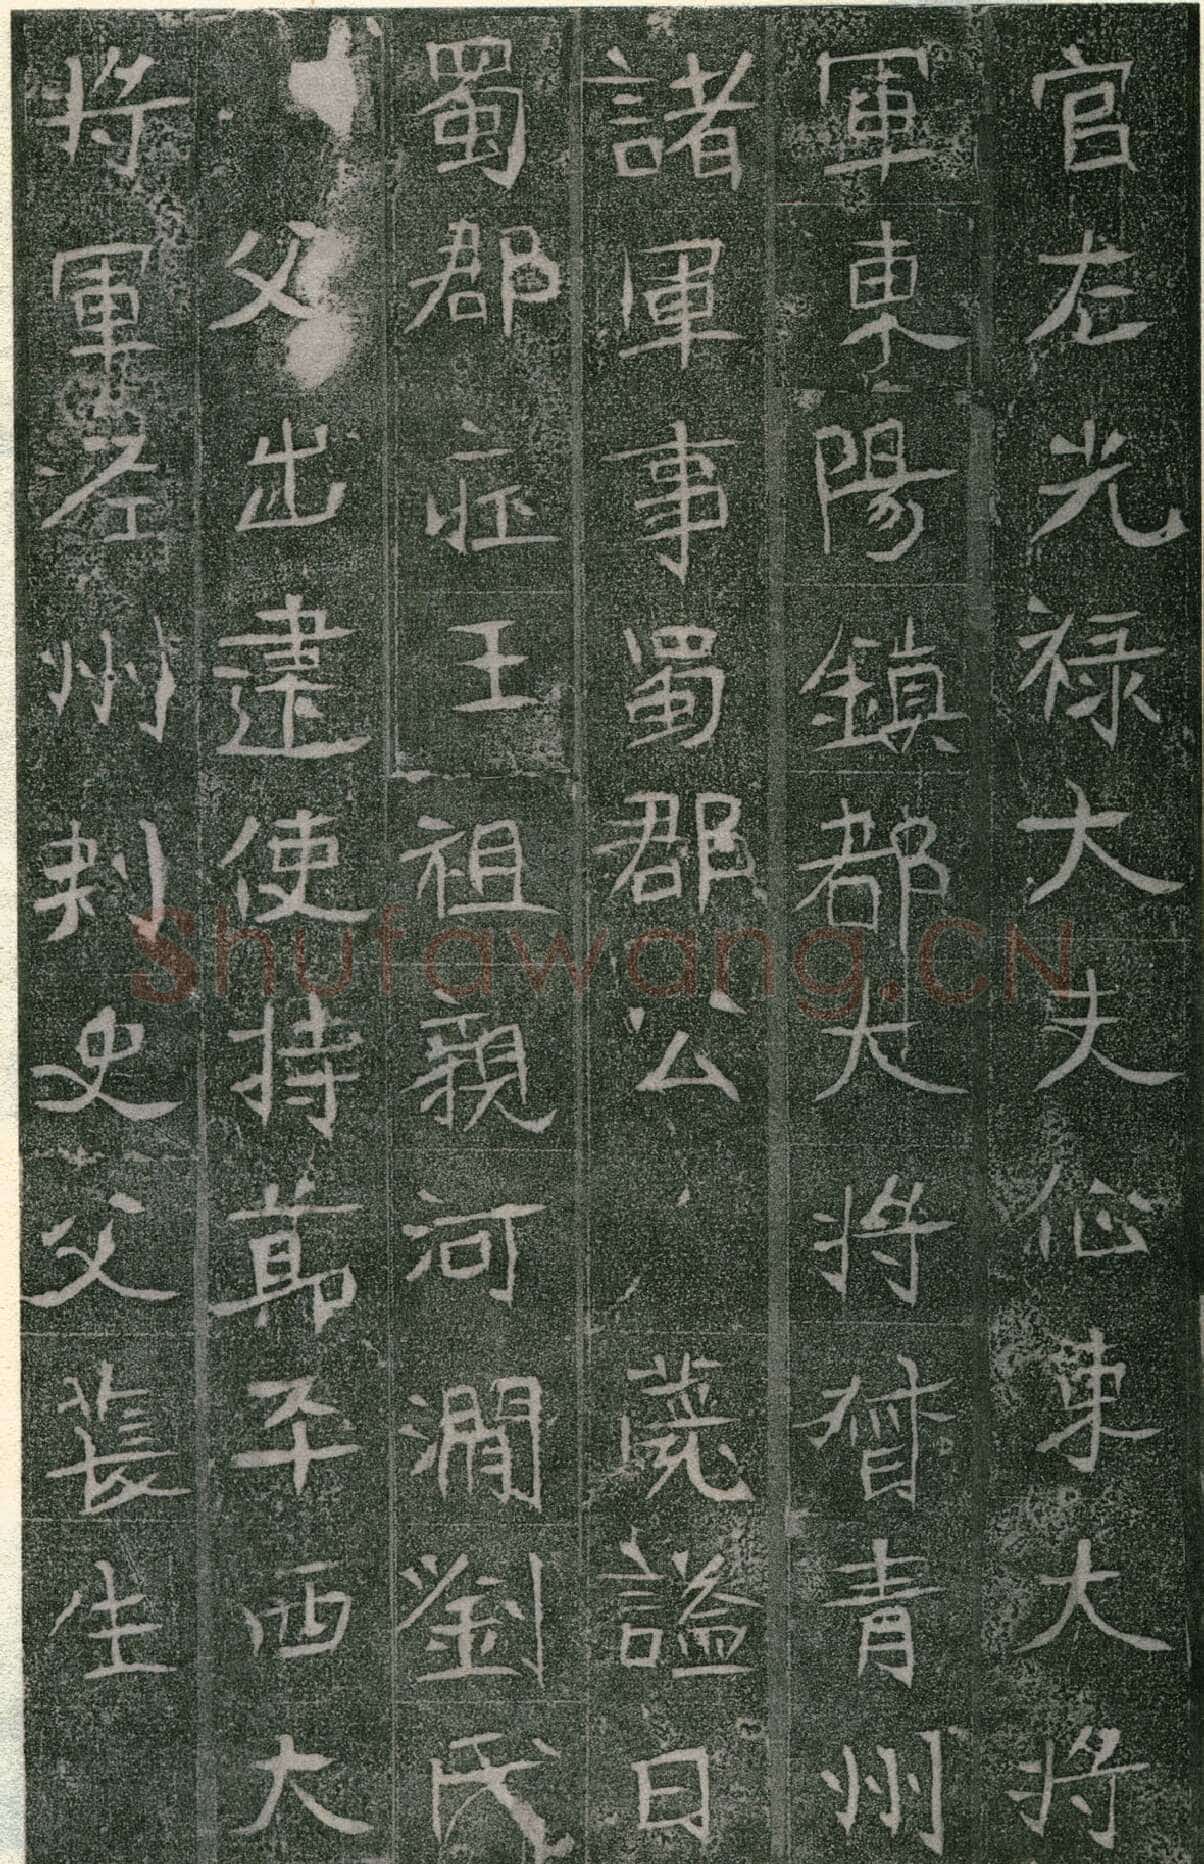 官左光祿大夫征東大將
軍東陽鎮都大將督青州
諸軍事蜀郡公薨諡曰
蜀郡莊王祖親河澗劉氏
父出建使持節平西大
將軍左州刺史父萇生
Shufawang.CN